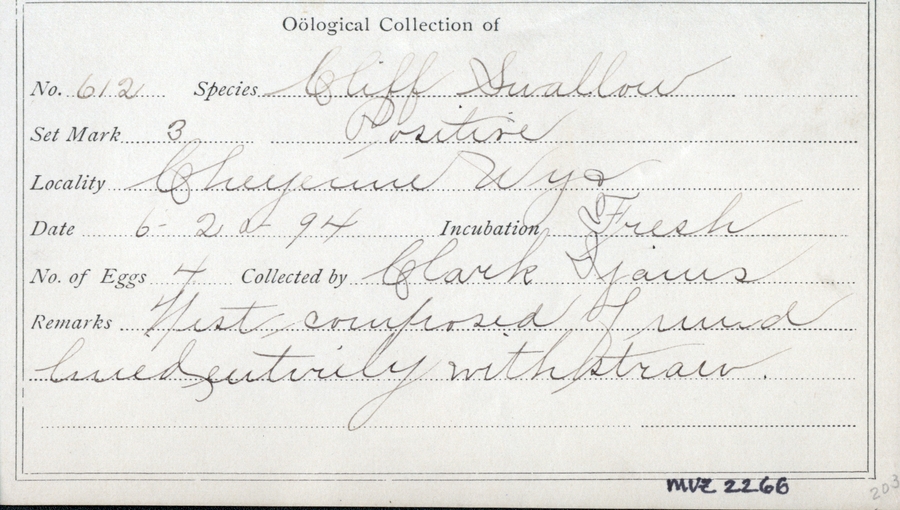 Oölogical Collection of
No. 612 Species Cliff Swallow
Set Mark 3 Positive
Locality Cheyenne Wyo
Date 6- 22- 94 Incubation Fresh
No. of Eggs 4 Collected by Clark
Remarks Nest composed of mud
lined entirely with straw.
MVZ 2266
203